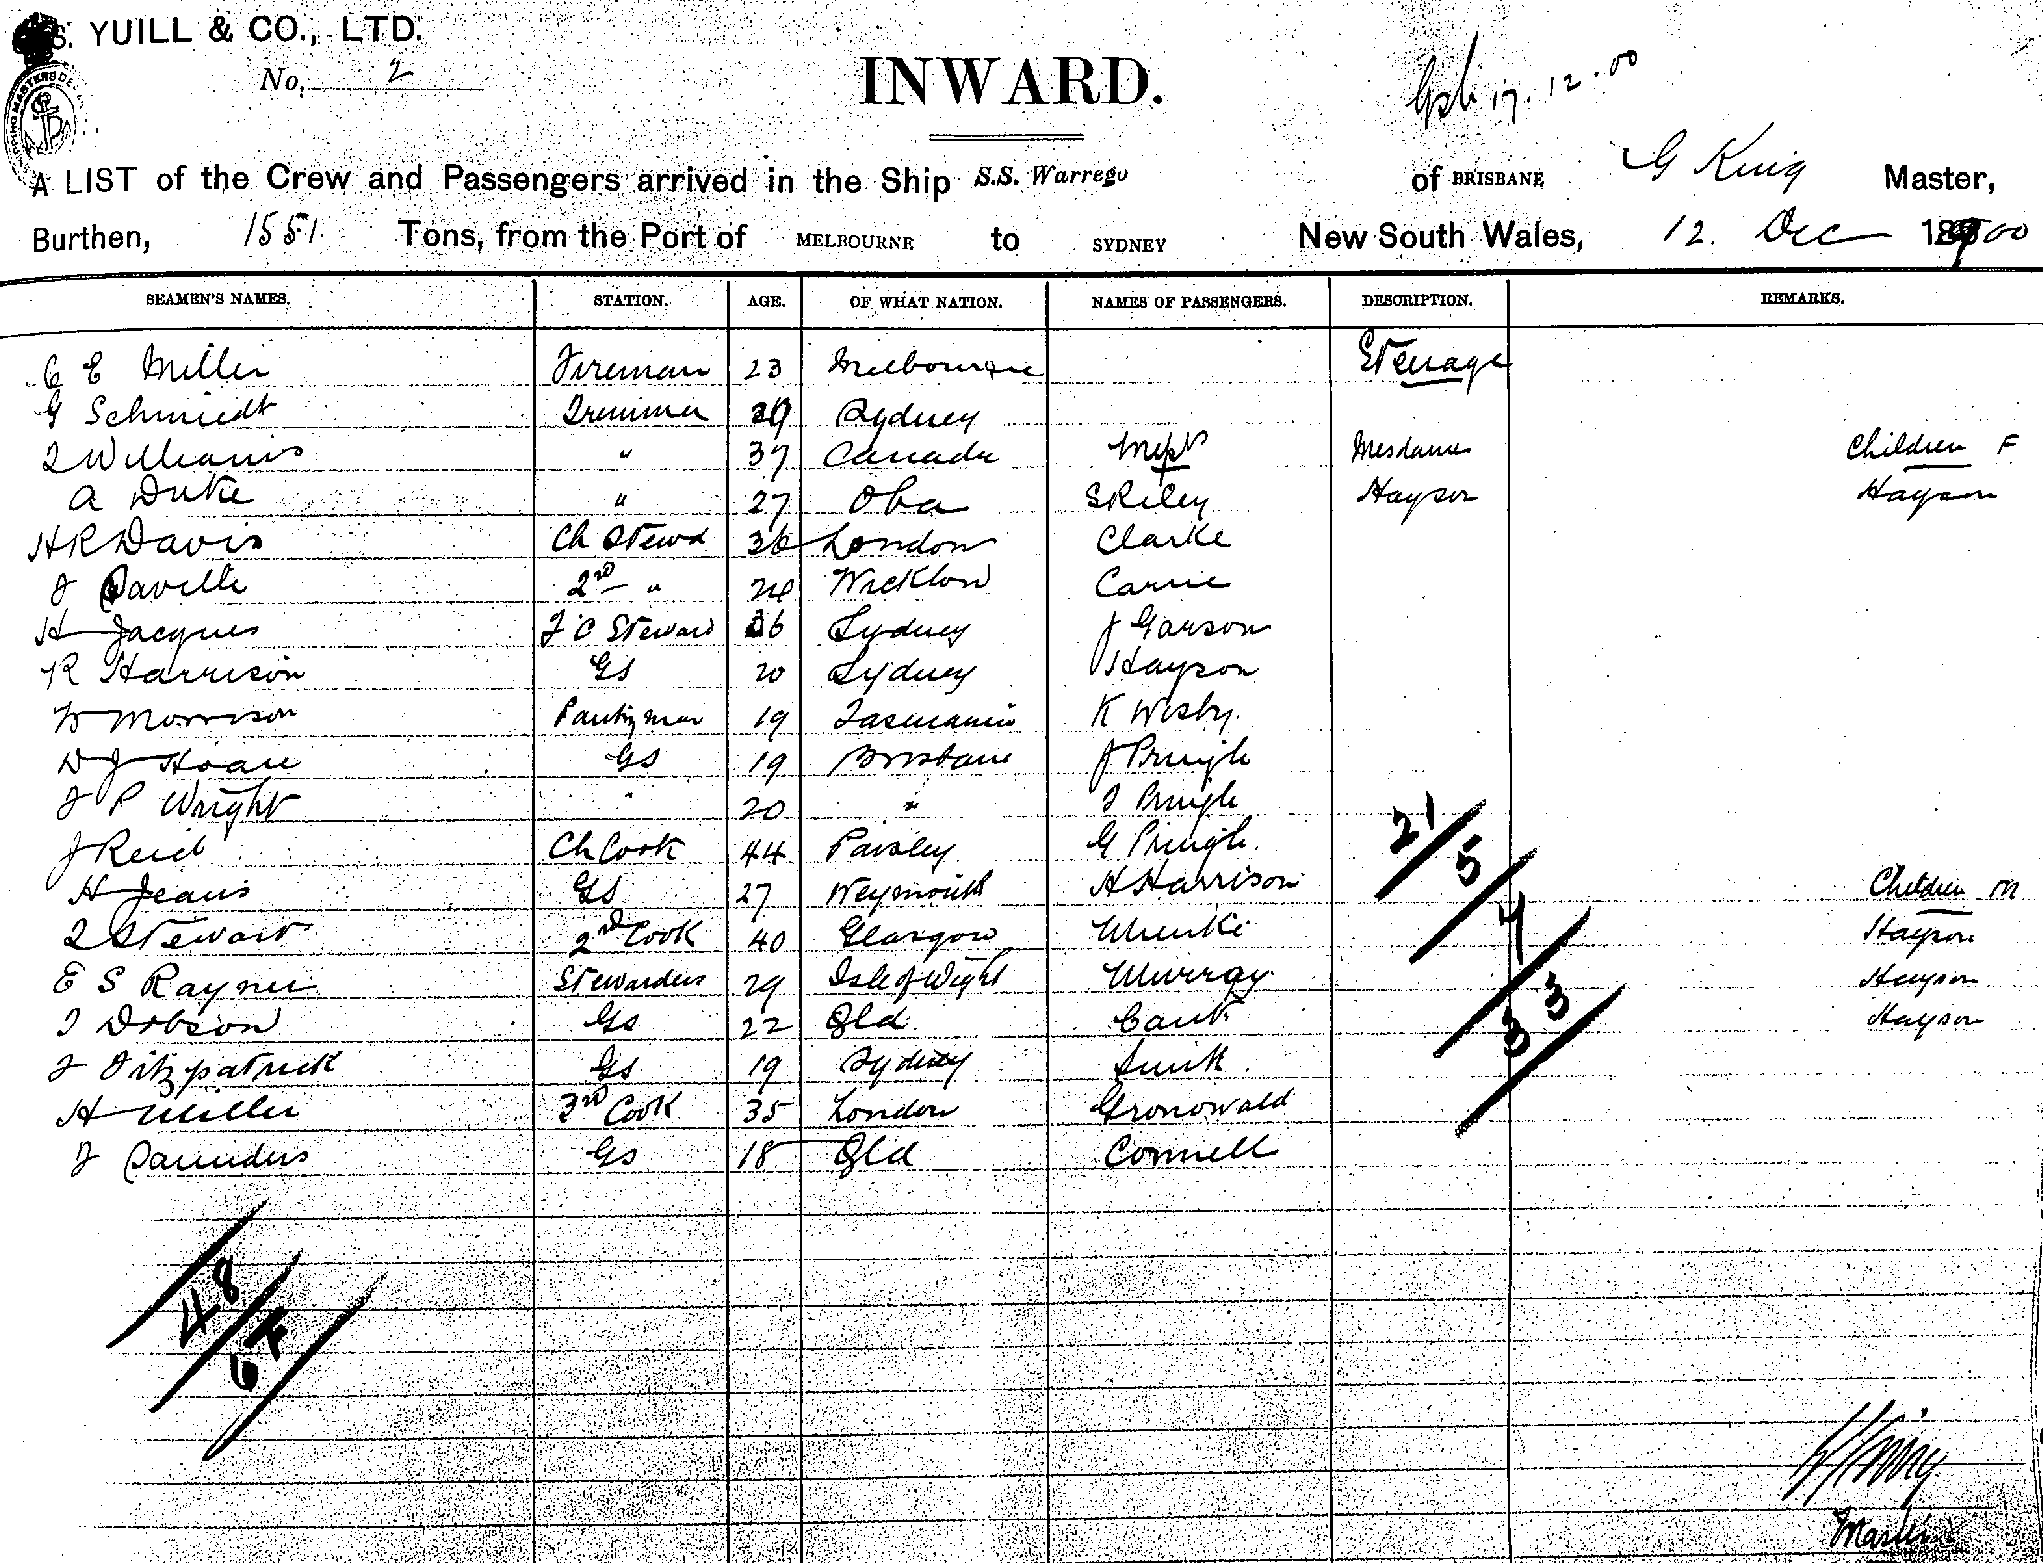 S. YUILL & CO., LTD.
No. 2
INWARD.
17.12.00
A LIST of the Crew and Passengers arrived in the Ship S.S. Warrego of BRISBANE G King Master,
Burthen, 1551 Tons, from the Port of MELBOURNE to SYDNEY New South Wales, 12. Dec 1900
SEAMEN'S NAMES. STATION. AGE. OF WHAT NATION. NAMES OF PASSENGERS. DESCRIPTION. REMARKS.
C E Miller Fireman 23 Melbourne Steerage
G Schmiedt Trimmer 29 Sydney
T Williams " 37 Canada Messrs Mesdames Children F
A Duke " 27 Oba S Riley Hayson Hayson
H R Davis Ch Stewd 36 London Clarke
J Saville 2nd " 24 Wicklow Carrie
H Jacques F C Steward 36 Sydney J Garson
R Harrison GS 20 Sydney Hayson
W Morrison Pantryman 19 Tasmania K Wisby.
D J Hoare GS 19 Brisbane J Pringle
J P Wright " 20 " T Pringle
J Reid Ch Cook 44 Paisley G Pringle. 21/5
H Jeans GS 27 Weymouth H Harrison Children M
T Stewart 2nd Cook 40 Glasgow Hayson
E S Rayner Stewardess 29 Isle of Wight Murray Hayson
T Dobson Gs 22 Qld Hayson
J Fitzpatrick Gs 19 Sydney 33
H Miller 3rd Cook 35 London Gronowald
J Saunders Gs 18 Qld Connell
48
G King
Master